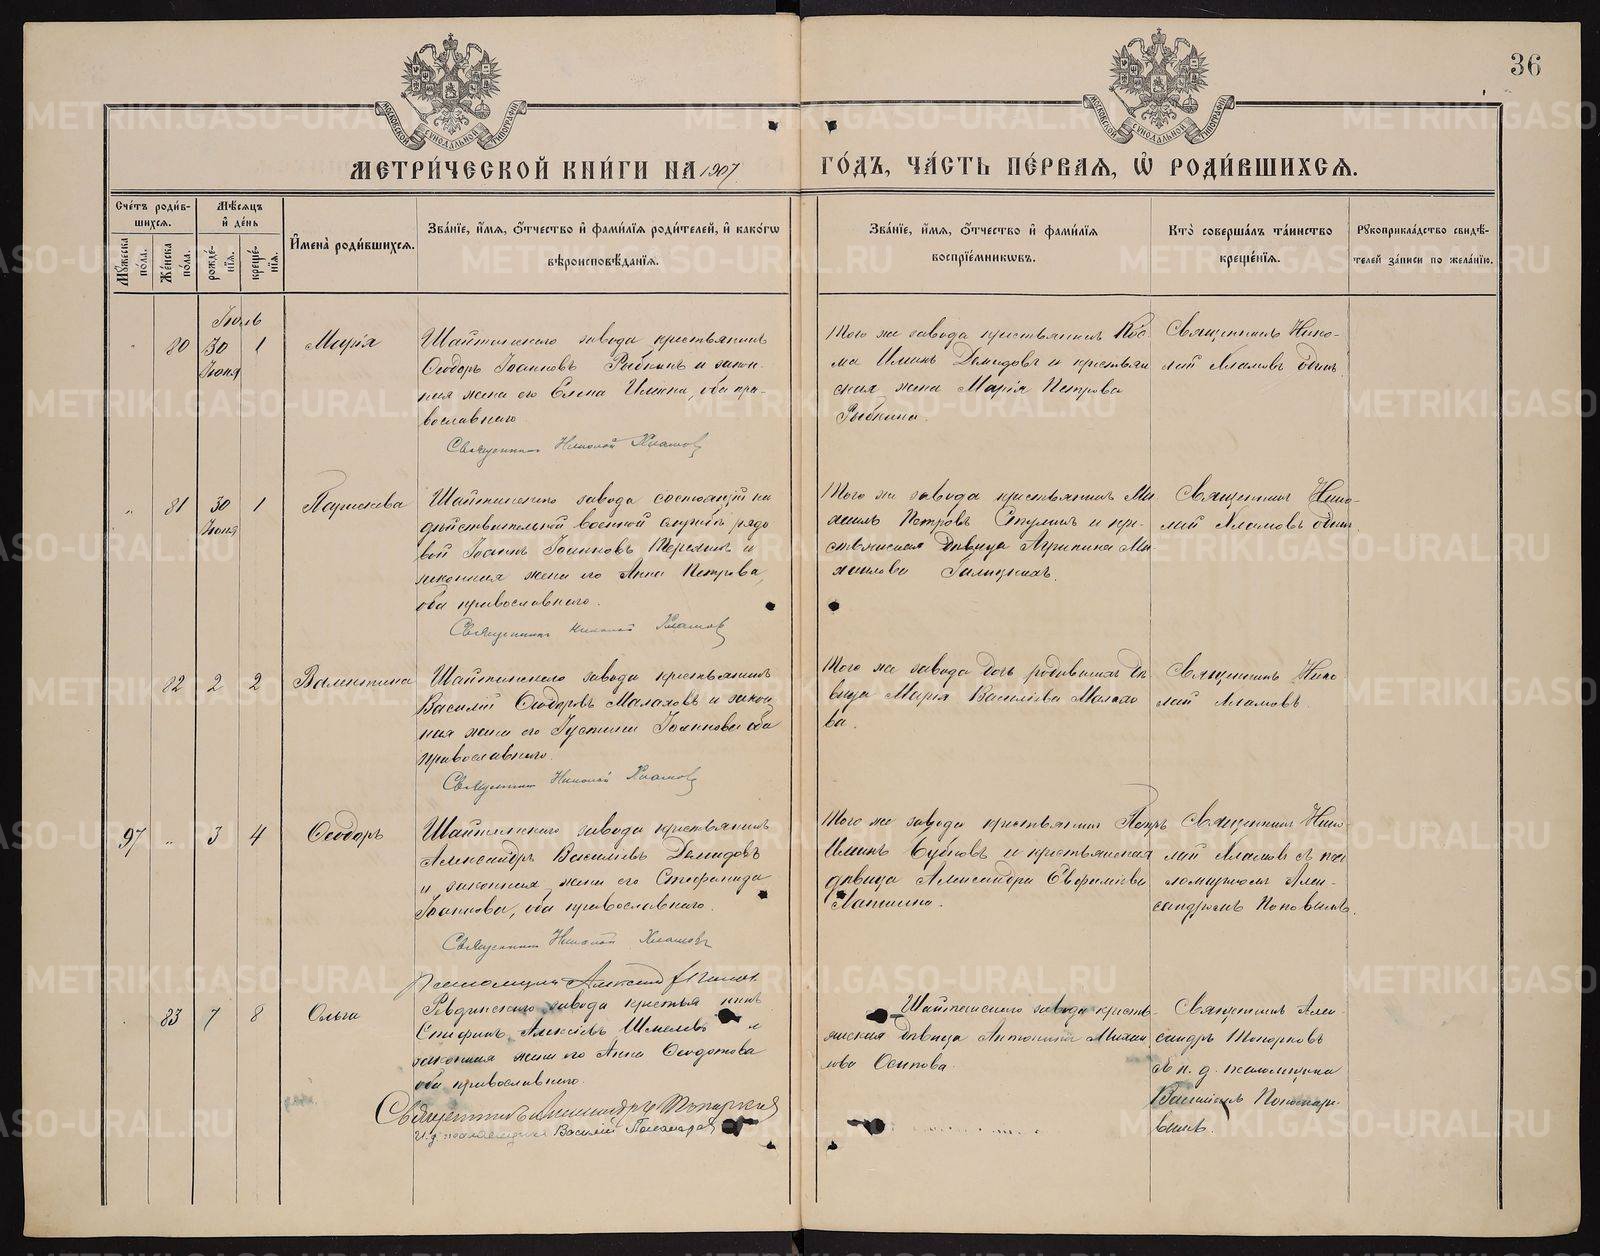 36
МОСКОВСКОЙ СѴНОДАЛЬНОЙ ТИПОГРАФІИ
МОСКОВСКОЙ СѴНОДАЛЬНОЙ ТИПОГРАФІИ
МЕТРИ́ЧЕСКОЙ КНИ́ГИ НА 1907
ГО́ДЪ, ЧА́СТЬ ПЕ́РВАЯ, Ѡ҆ РОДИ́ВШИХСЯ.
Сче́тъ роди́в-
шихся.
Мѣ́сяцъ
и҆ де́нь
Му́жеска
по́ла.
Же́нска
по́ла.
рожде́-
нїя.
креще́-
нїя.
И҆мена̀ роди́вшихся.
Зва́нїе, и҆́мя, ѻ҆́тчество и҆ фами́лїя роди́телей, и҆ како́гѡ
вѣроисповѣ́данїя.
Зва́нїе, и҆́мя, ѻ҆́тчество и҆ фами́лїя
воспрїе́мникѡвъ.
Кто̀ соверша́лъ та́инство
креще́нїя.
Рꙋкоприкла́дство свидѣ́-
телей за́писи по жела́нїю.
Іюль
80 30 1 Марія
Іюня
Шайтанскаго завода крестьянинъ
Ѳеодоръ Іоанновъ Рыбкинъ и закон-
ная жена его Елена Ильина, оба пра-
вославнаго
Священникъ Николай Хламовъ
Того же завода крестьянинъ Кос
ма Ильинъ Демидовъ и крестьян
ская жена Марія Петрова
Рыбкина.
Священникъ Нико-
лай Хламовъ
„ 81 30 1 Параскева
Іюня
Шайтанскаго завода состоящій на
дѣйствительной военной службѣ рядо
вой Іоаннъ Іоанновъ и
законная жена его Анна Петрова,
оба православнаго.
Священникъ Николай Хламовъ
Того же завода крестьянинъ Ми
хаилъ Петровъ и кре-
стьянская дѣвица Агрипина Ми
хаилова
Священникъ Нико-
лай Хламовъ
82 2 2 Валентина
Шайтанскаго завода крестьянинъ
Василій Ѳеодоровъ Малаховъ и закон
ная жена его Іустина Іоаннова оба
православнаго.
Священникъ Николай Хламовъ
Того же завода дочь родившихъ дѣ
вица Марія Василіева Малахо
ва.
Священникъ Нико
лай Хламовъ.
97 „ 3 4 Ѳеодоръ
Шайтанскаго завода крестьянинъ
Александръ Василіевъ Демидовъ
и законная жена его Стефанида
Іоаннова, оба православнаго.
Священникъ Николай Хламовъ
Псаломщикъ
Того же завода крестьянинъ Петръ
Ильинъ и крестьянская
дѣвица Александра Евфиміева
Лапшина.
Священникъ Нико-
лай Хламовъ съ пса
ломщикомъ Алек-
сандромъ Поповымъ.
83 7 8 Ольга
Ревдинскаго завода крестья нинъ
Алексіевъ Шмелевъ и
законная жена его Анна Ѳеодотова
оба православнаго.
Священникъ Александръ Топорковъ
И. д. псаломщика Василій Пономаревъ
Шайтанскаго завода кресть-
янская дѣвица Антонина Михаи
лова Осипова.
Священникъ Алек-
сандръ Топорковъ
съ и. д. псаломщика
Василіемъ Пономаре-
вымъ.
METRIKI.GASO-URAL.RU